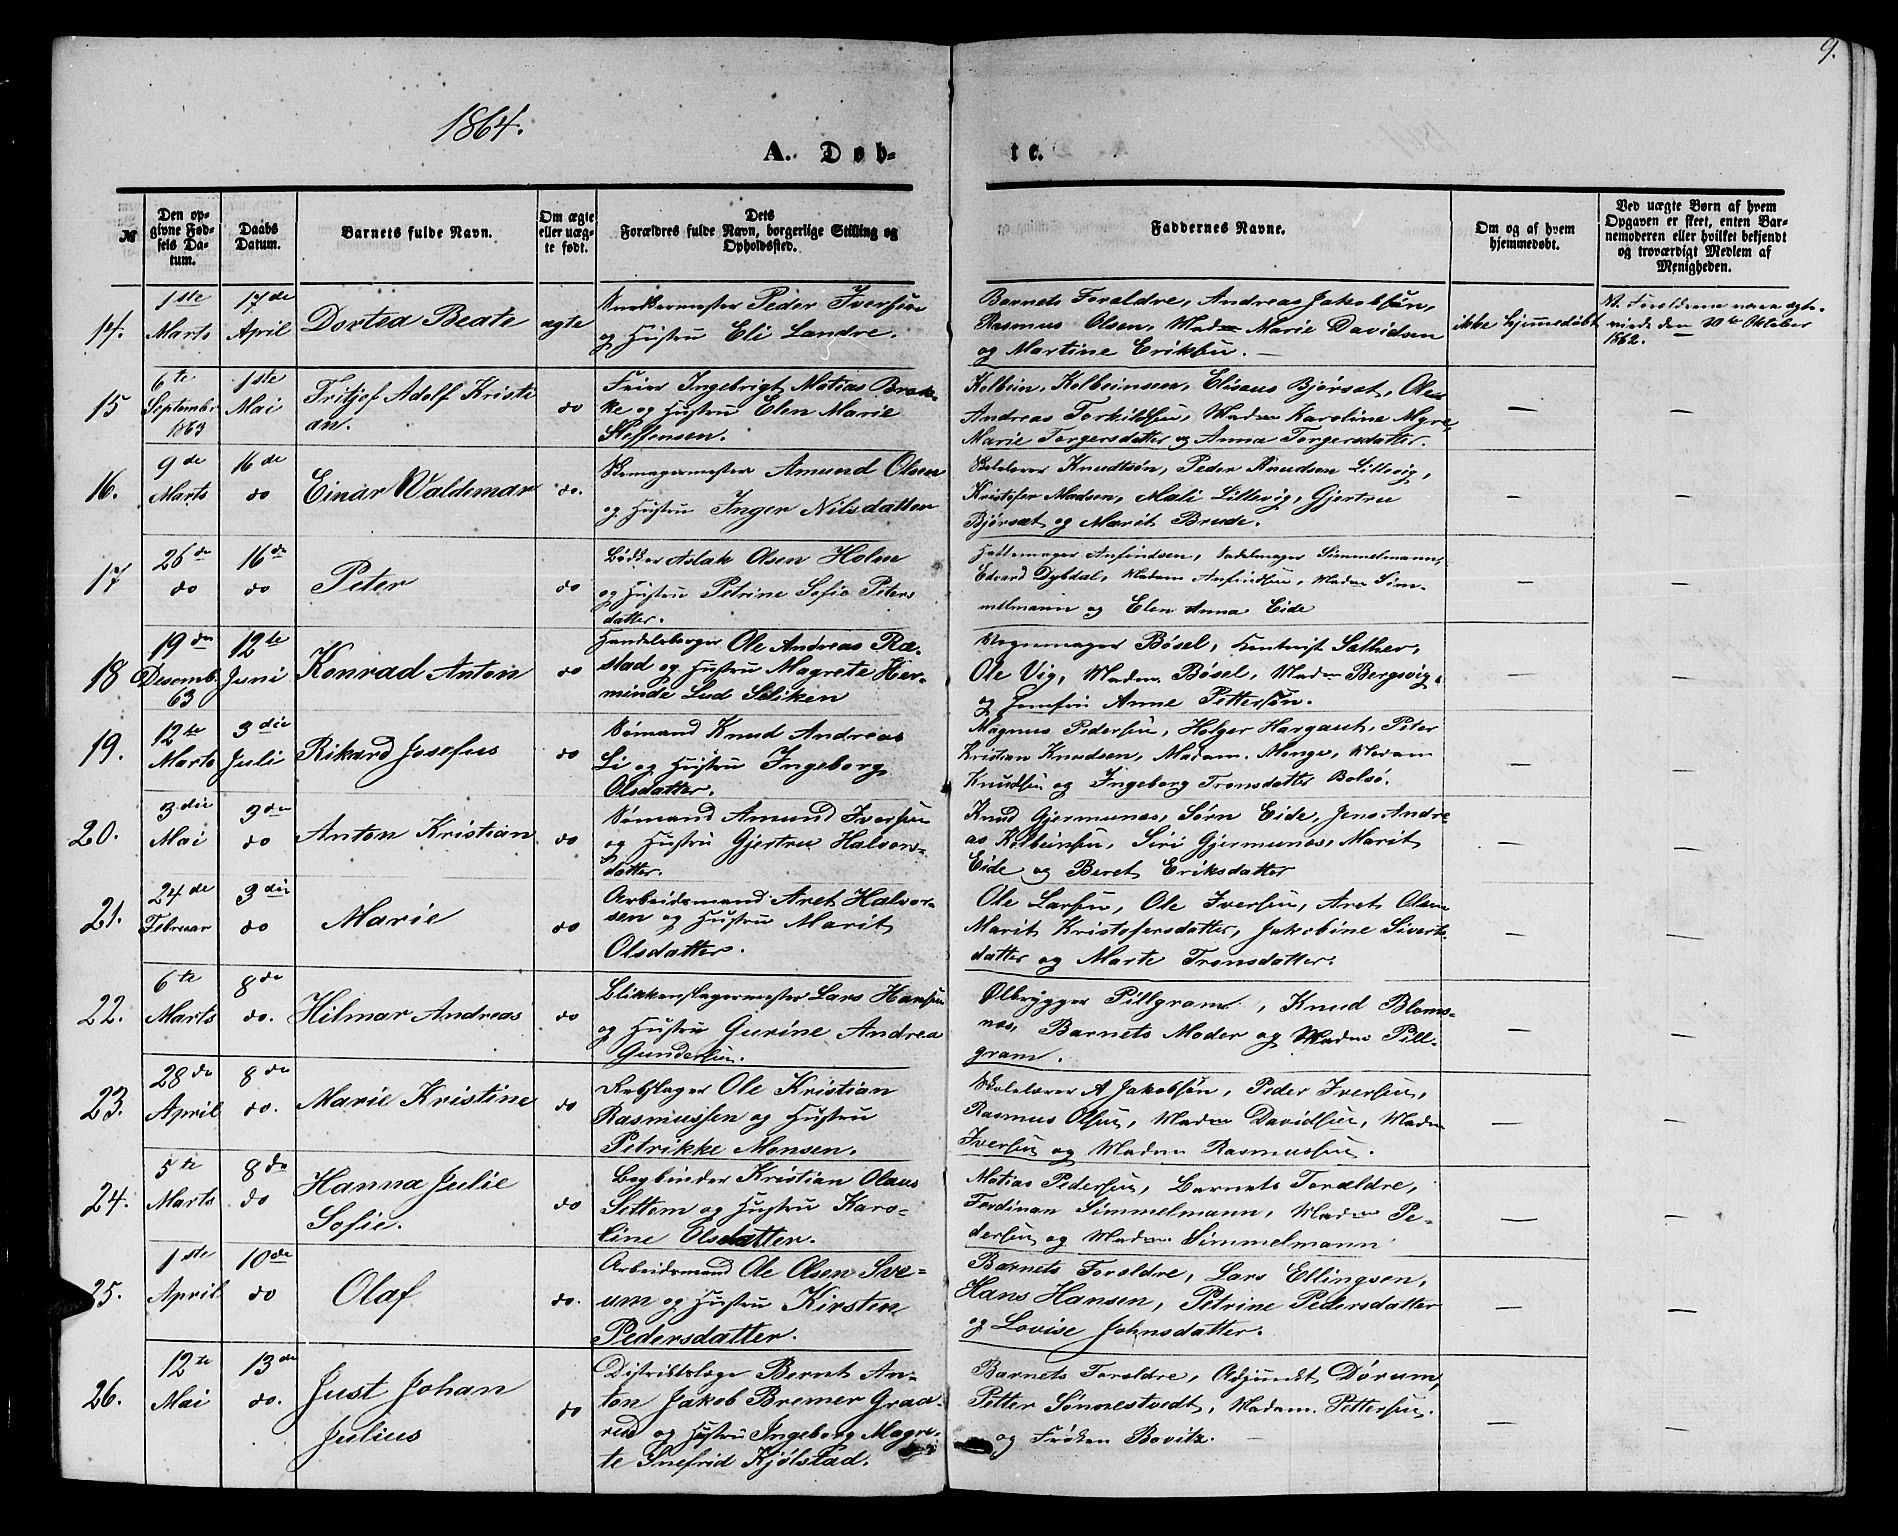 9.
1864.
A. Døb-
te.
№
Den op-
givne Fød-
sels Da-
tum.
Daabs
Datum.
Barnets fulde Navn.
Om ægte
eller uæg-
te født.
Dets
Forældres fulde Navn, borgerlige Stilling og
Opholdssted.
Faddernes Navne.
Om og af hvem
hjemmedøbt.
Ved uægte Børn af hvem
Opgaven er skeet, enten Bar-
nemoderen eller hvilket bekjendt
og troværdigt Medlem af
Menigheden.
14.
1ste
Marts
17de
April
Dortea Beate
ægte
Murkermester Peder Iversen
og Hustru Eli Landre.
Barnets Foraldre, Andreas Jakobsøn,
Rasmus Olsen, Madm Marie Davidsen
og Martine Eriksen.
ikke hjemmedøbt
Foraldrene vare ægte-
viede den 10de Oktober
1862.
15
6te
Septembr
1863
1ste
Mai
Fritjof Adolf Kristi
an.
do
Feier Ingebrigt Matias Brak-
ke og Hustru Elen Marie
Steffensen.
Kolbein Kolbeinsen, Eliseus Bjørset, Ole
Andreas Torkildsen, Madm Karoline Myre,
Marie Torgersdatter og Anna Torgersdatter.
—
—
16.
9de
Marts
16de
do
Einar Waldemar
do.
Skomagermester Amund Olsen
og Hustru Inger Nilsdatter
Skolelærer Knudtsøn, Peder Knudsen Lillevig,
Kristofer Madsen, Mali Lillevig, Gjertru
Bjørset og Marit Brude.
—
—
17
26de
do
16de
do
Peter
do
Bødker Aslak Olsen Holm
og Hustru Petrine Sofie Peters
datter.
Hattemager Anfindsen, Sadelmager Simmelmann,
Edvard Dybdal, Madam Anfindsen, Madm Sim-
melmann og Elen Anna Eide
—
—
18
19de
Desemb.
63
12te
Juni
Konrad Anton
do
Handelsborger Ole Andreas Ræ-
stad og Hustru Magrete Her-
minde Lud Seliken
Vognmager Bøsel, Kontorist Sather,
Ole Vig, Madm Bøsel, Madm Bergsvig
og Jomfru Anne Pettersøn.
—
—
19.
12te
Marts
3die
Juli
Rikard Josefus
do
Sømand Knud Andreas
Li og Hustru Ingeborg
Olsdatter.
Magnus Pedersen, Holger Hargaut, Peter
Kristian Knudsen, Madam Monge, Madam
Knudsen og Ingeborg Tronsdatter Bolsø.
—
—
20.
3die
Mai
3die
do
Anton Kristian
do
Sømand Amund Iversen
og Hustru Gjertru Halvors-
datter.
Knud Gjermunes, Sørn Eide, Jens Andre-
as Kolbeinsen, Siri Gjermunes, Marit
Eide og Beret Eriksdatter
—
—
21.
24de
Februar
3die
do
Marie
do
Arbeidsmand Aret Halvor-
sen og Hustru Marit
Olsdatter.
Ole Larsen, Ole Iversen, Aret Olsen
Marit Kristofersdatter, Jakobine Siverts-
datter og Marte Tronsdatter.
—
—
22.
6te
Marts
8de
do.
Hilmar Andreas
do
Blikkenslagermester Lars Hansen
og Hustru Gurine Andrea
Gundersen.
Ølbrygger Pillgram, Knud Bloms-
næs, Barnets Moder og Madm Pill-
gram.
—
—
23.
28de
April
8de
do.
Marie Kristine
do
Rebslager Ole Kristian
Rasmussen og Hustru
Petrikke Monsen.
Skolelærer A Jakobsøn, Peder Iversen,
Rasmus Olsen, Madm Davidsen, Madm
Iversen og Madm Rasmussen.
—
—
24.
5te
Marts
8de
do
Hanna Julie
Sofie.
do
Bogbinder Kristian Olaus
Settem og Hustru Karo-
line Olsdatter.
Matias Pedersen, Barnets Foraldre,
Ferdinan Simmelmann, Madm Pe-
dersen og Madm Simmelmann
—
—
25.
1ste
April
10de
do
Olaf
do.
Arbeidsmand Ole Olsen Sve-
um og Hustru Kirsten
Pedersdatter.
Barnets Foraldre, Lars Ellingsen,
Hans Hansen, Petrine Pedersdatter
og Lovise Johnsdatter.
—
—
26.
12te
Mai
13de
do.
Just Johan
Julius
do
Distriktslæge Bernt An-
ton Jakob Bremer Graa-
rud og Hustru Ingeborg Magre-
te Snefrid Kjølstad.
Barnets Foraldre, Adjunkt Dørum,
Petter Sønnestvedt, Madam Pettersen
og Frøken Bovitz.
—
—